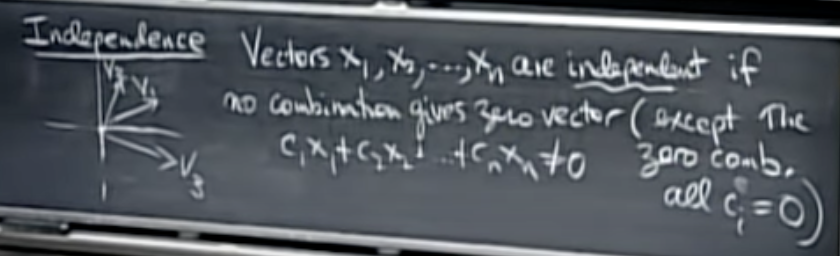 Independence
Vectors x₁, x₂, ..., xₙ are independent if
no combination gives zero vector (except the
zero comb.
c₁x₁+c₂x₂+...+cₙxₙ≠0
all cᵢ=0)
V₂
V₁
V₃